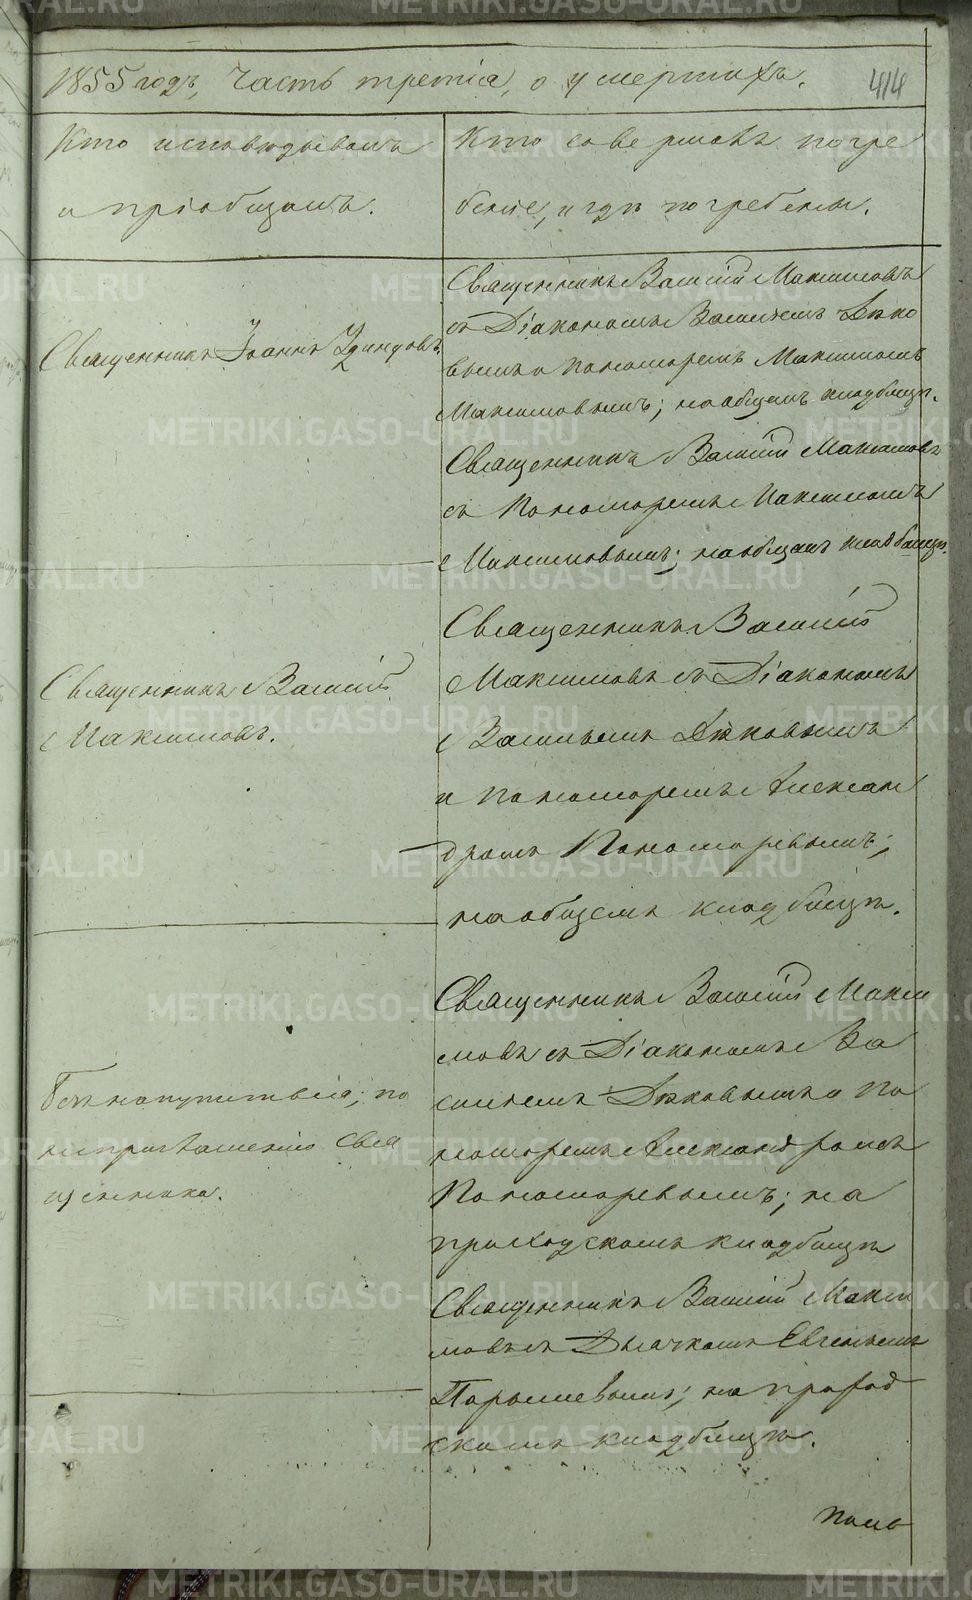 1855 годъ, Часть третіа, о умершихъ.
414
Кто исповѣдывалъ
и пріобщалъ.
Кто совершалъ погре
беніе, и гдѣ погребены.
Священникъ Іоаннъ
Священникъ Василій Максимовъ
съ Діакономъ Васильемъ Дѣко
вымъ и Пономоремъ Максимомъ
Максимовымъ; на общемъ кладбищѣ.
Священникъ Василій Максимовъ
съ Пономоремъ Максимомъ
Максимовымъ; на общемъ кладбищѣ.
Священникъ Василій
Максимовъ.
Священникъ Василій
Максимовъ съ Діакономъ
Васильемъ Дѣковымъ
и Пономоремъ Алексан
дромъ Пономоревымъ;
на общемъ кладбищѣ.
Безъ напутствія; по
неприглашенію Свя
щенника.
Священникъ Василій Макси
мовъ съ Діакономъ Ва
сильемъ Дѣковымъ и По
номоремъ Александромъ
Пономоревымъ; на
приходскомъ кладбищѣ
Священникъ Василій Макси
мовъ съ Дьячкомъ Евгеньемъ
Парышевымъ; на приход
скомъ кладбищѣ.
METRIKI.GASO-URAL.RU